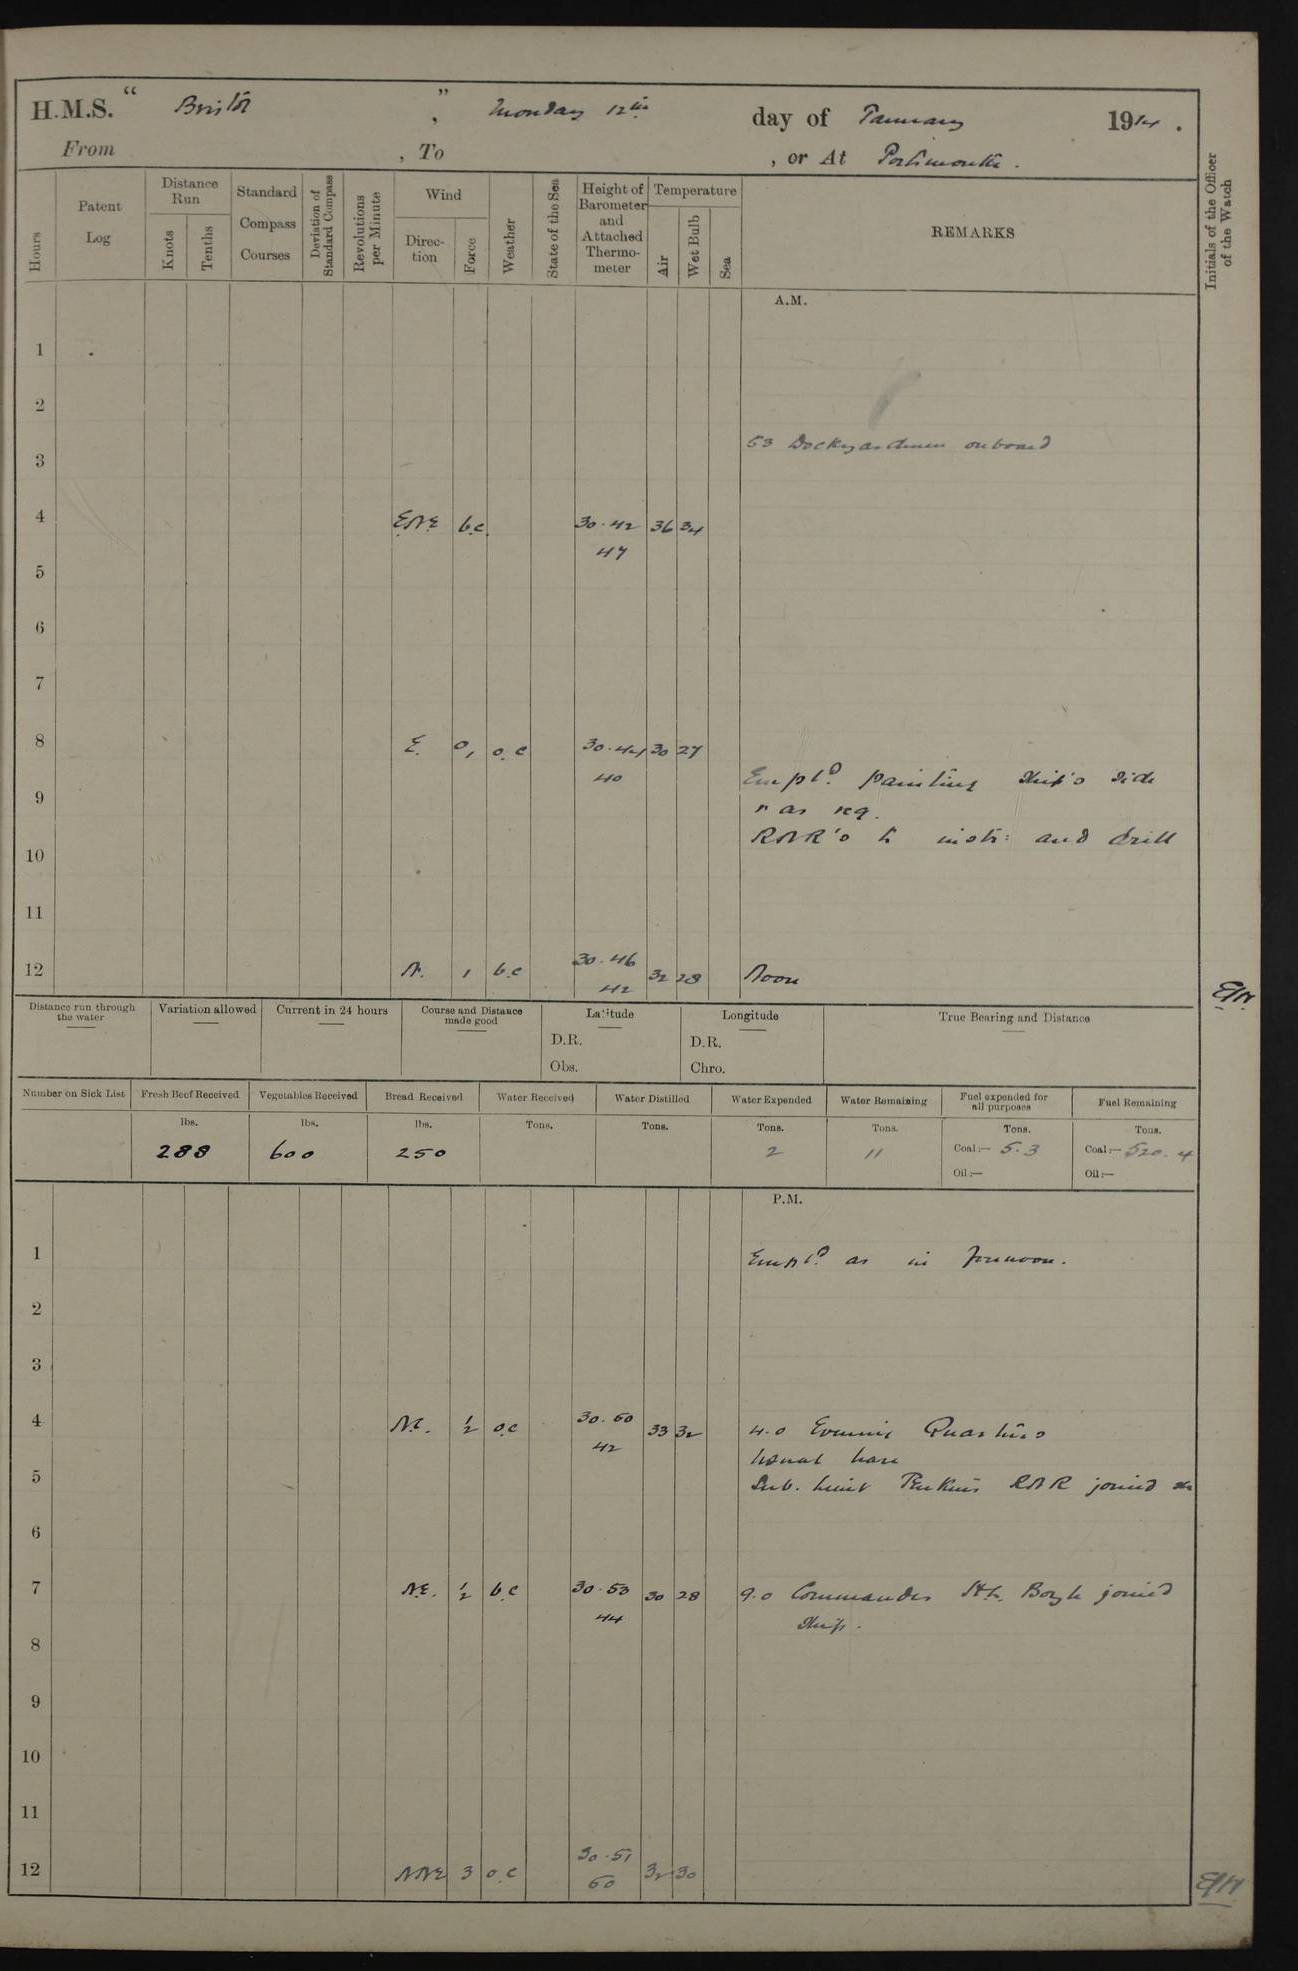 H.M.S. " Bristol ", Monday 12th day of January 1914.
From , To , or At Portsmouth.
Hours
Patent Log
Distance Run
Knots
Tenths
Standard Compass Courses
Deviation of Standard Compass
Revolutions per Minute
Wind
Direction
Force
Weather
State of the Sea
Height of Barometer and Attached Thermometer
Temperature
Air
Wet Bulb
Sea
REMARKS
Initials of the Officer of the Watch
A.M.
1
2
53 Dockyardmen onboard
3
4 ENE b.c. 30.42 36 34
47
5
6
7
8 E. 0,1 o.c 30.44 30 27
40
Empld. painting Ship's side
9
" as req.
RNR's to instr: and drill
10
11
12 N. 1 b.c 30.46 32 28 Noon
42
Distance run through the water
Variation allowed
Current in 24 hours
Course and Distance made good
Latitude
D.R.
Obs.
Longitude
D.R.
Chro.
True Bearing and Distance
Number on Sick List
Fresh Beef Received
Vegetables Received
Bread Received
Water Received
Water Distilled
Water Expended
Water Remaining
Fuel expended for all purposes
Fuel Remaining
lbs. lbs. lbs. Tons. Tons. Tons. Tons. Tons. Tons.
288 600 250 2 11 Coal:— 5.3 Coal:— 520.4
Oil:— Oil:—
P.M.
1 Empld. as in forenoon.
2
3
4 N.E. ½ o.c 30.50 33 32 4.0 Evening Quarters
42
Usual leave
5 Sub. Lieut Perkins RNR joined
6
7 N.E. ½ b.c 30.53 30 28 9.0 Commander Boyle joined
44
Ship.
8
9
10
11
12 NNE 3 o.c 30.51 32 30
50